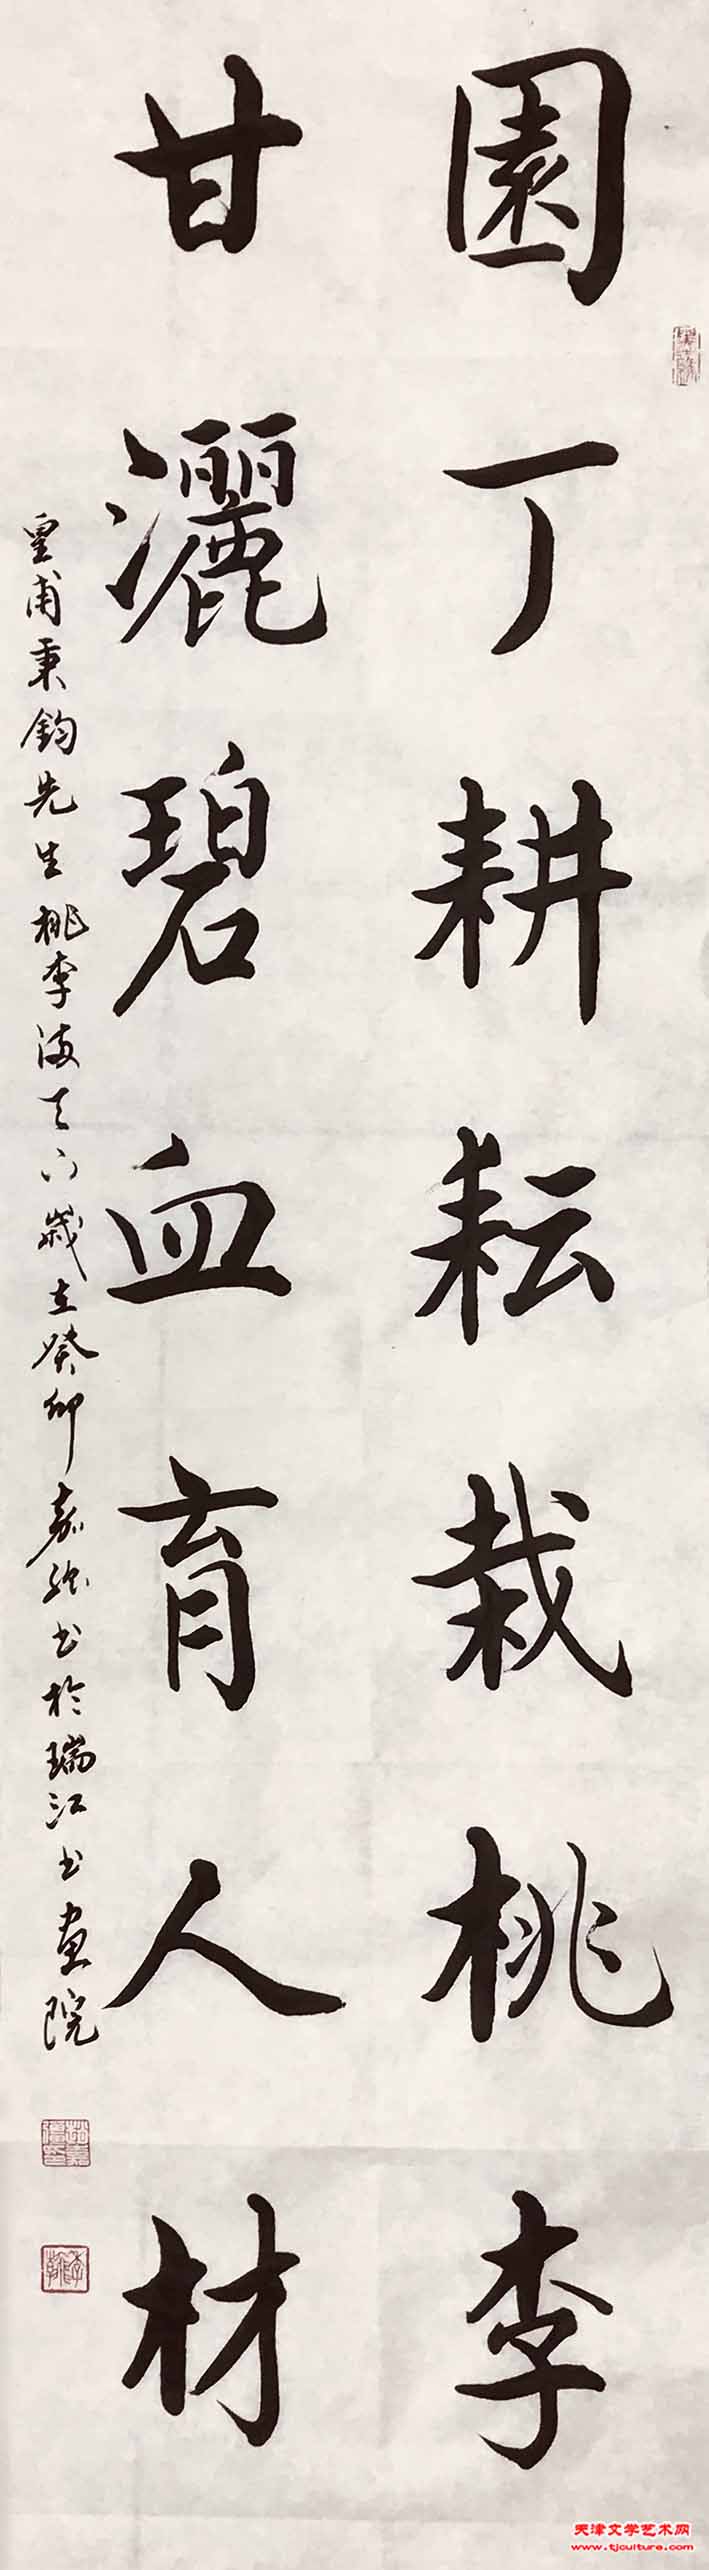 園丁耕耘栽桃李
甘灑碧血育人材
皇甫秉鈞先生桃李滿天下歲在癸卯嘉強书於瑞江书画院
天津文学艺术网
www.tjculture.com